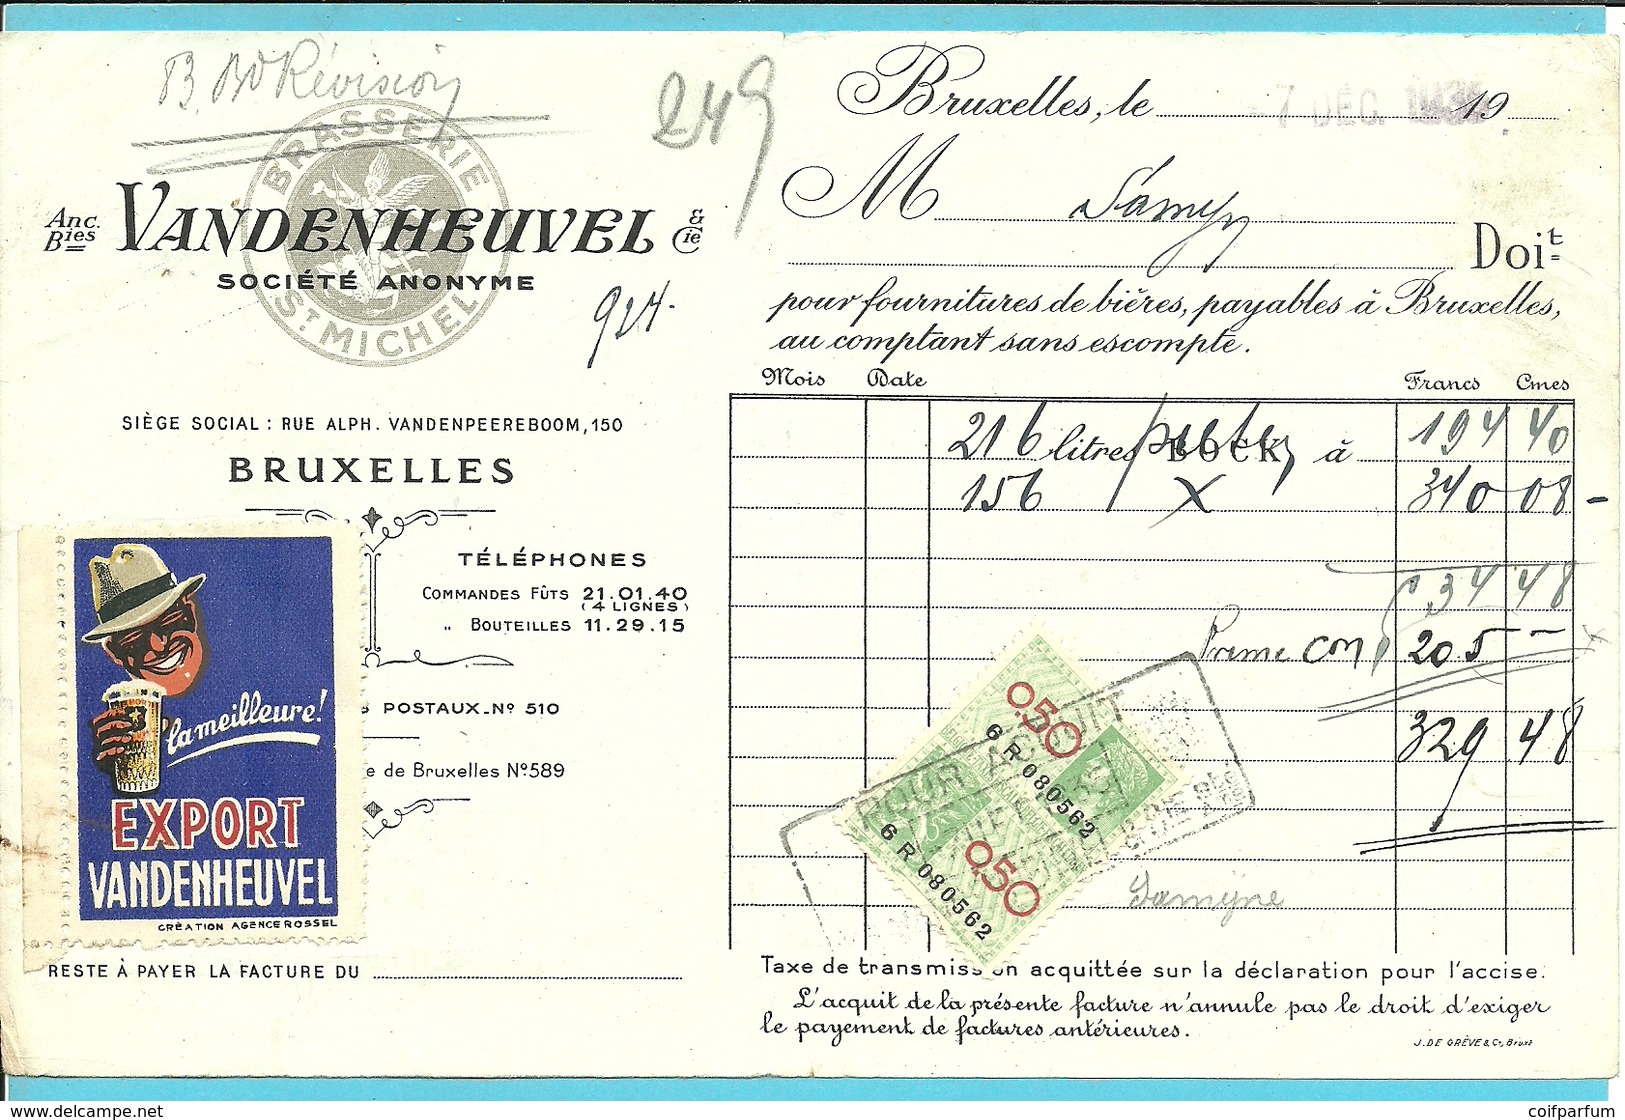 B. Bd Révision
249
BRASSERIE
ST MICHEL
Anc. Bies VANDENHEUVEL & Cie
SOCIÉTÉ ANONYME
924.
SIÈGE SOCIAL : RUE ALPH. VANDENPEEREBOOM, 150
BRUXELLES
TÉLÉPHONES
COMMANDES FÛTS 21.01.40
(4 LIGNES)
,, BOUTEILLES 11.29.15
POSTAUX_No 510
e de Bruxelles No 589
la meilleure!
EXPORT
VANDENHEUVEL
CRÉATION AGENCE ROSSEL
RESTE À PAYER LA FACTURE DU
Bruxelles, le 19
-7 DEC. 1935
M Samyn
Doit
pour fournitures de bières, payables à Bruxelles,
au comptant sans escompte.
Mois Date Francs Cmes
216 litres BOCK à 194 40
156 X 340 08 -
534 48
Prime 205 -
329 48
0.50
6 R 080562
0.50
6 R 080562
POUR ACQUIT
Samyne
Taxe de transmission acquittée sur la déclaration pour l'accise.
L'acquit de la présente facture n'annule pas le droit d'exiger
le payement de factures antérieures.
J. DE GRÈVE & Co, Brux.
coifparfum